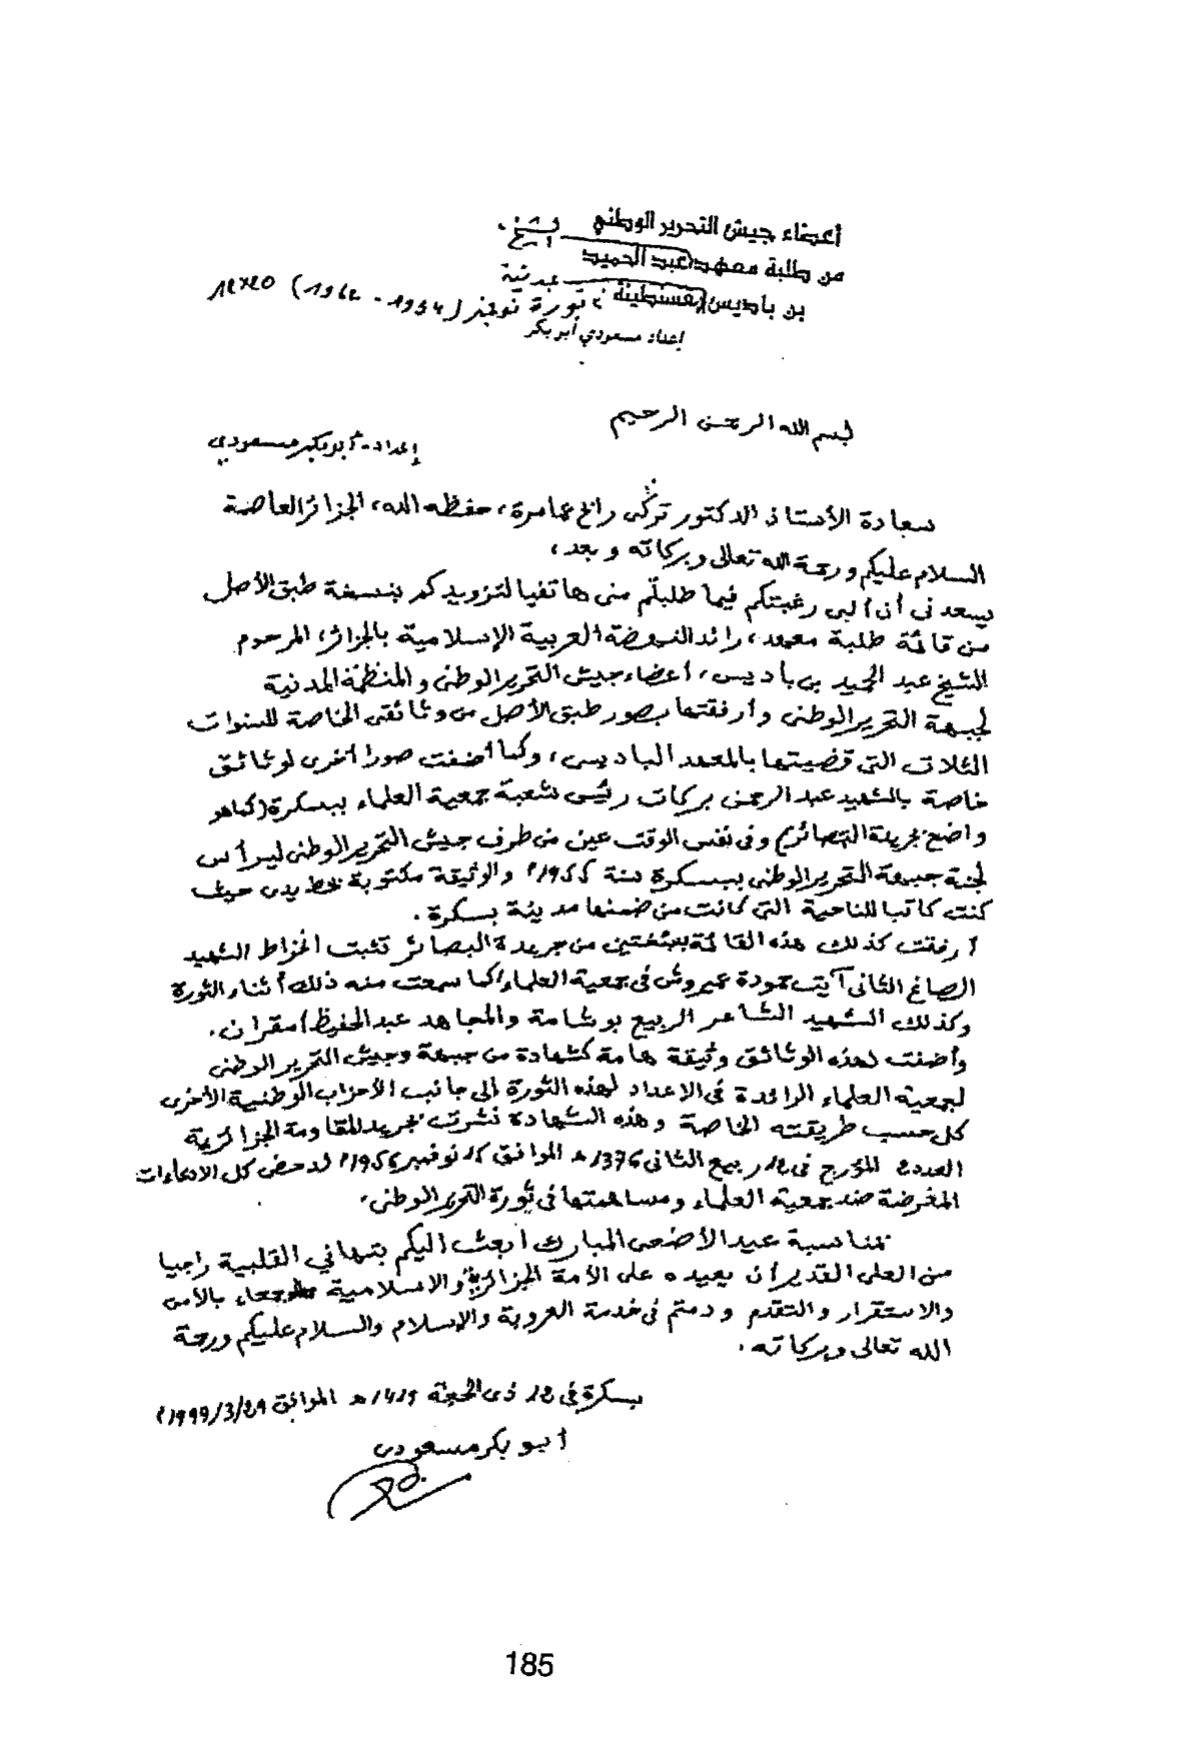 أعضاء جيش التحرير الوطني
من طلبة معهد عبد الحميد الشيخ.
بن باديس بقسنطينة بمدينة
ثورة نوفمبر (1954 - 1962)
إعداد مسعودي أبو بكر
بسم الله الرحمن الرحيم
إعداد - أبو بكر مسعودي
سعادة الأستاذ الدكتور تركي رابح عمامرة، حفظه الله، الجزائر العاصمة
السلام عليكم ورحمة الله تعالى وبركاته وبعد،
يسعدني أن ألبي رغبتكم فيما طلبتم مني هاتفيا لتزويدكم بنسخة طبق الأصل
من قائمة طلبة معهد، رائد النهضة العربية الإسلامية بالجزائر، المرحوم
الشيخ عبد الحميد بن باديس، أعضاء جيش التحرير الوطني والمنظمة المدنية
لجبهة التحرير الوطني وأرفقتها بصور طبق الأصل من وثائقي الخاصة للسنوات
الثلاث التي قضيتها بالمعهد الباديسي، وكما أضفت صورا أخرى لوثائق
خاصة بالشهيد عبد الرحمن بركات رئيس شعبة جمعية العلماء ببسكرة (كما هو
واضح بجريدة البصائر) وفي نفس الوقت عين من طرف جيش التحرير الوطني ليرأس
لجنة جبهة التحرير الوطني ببسكرة سنة 1955م والوثيقة مكتوبة بخط يدي حيث
كنت كاتبا للناحية التي كانت من ضمنها مدينة بسكرة.
أرفقت كذلك هذه القائمة بنسختين من جريدة البصائر تثبت انخراط الشهيد
الصاغ الثاني آيت حمودة عميروش في جمعية العلماء كما سمعت منه ذلك أثناء الثورة
وكذلك الشهيد الشاعر الربيع بوشامة والمجاهد عبد الحفيظ أمقران.
وأضفت لهذه الوثائق وثيقة هامة كشهادة من جبهة وجيش التحرير الوطني
لجمعية العلماء الرائدة في الاعداد لهذه الثورة الى جانب الأحزاب الوطنية الأخرى
كل حسب طريقته الخاصة وهذه الشهادة نشرت بجريدة المقاومة الجزائرية
العدد المؤرخ في 12 ربيع الثاني 1376 هـ الموافق نوفمبر 1956م لدحض كل الادعاءات
المغرضة ضد جمعية العلماء ومساهمتها في ثورة التحرير الوطني.
بمناسبة عيد الأضحى المبارك أبعث اليكم بتهاني القلبية راجيا
من العلى القدير أن يعيده على الأمة الجزائرية والاسلامية جمعاء بالأمن
والاستقرار والتقدم ودمتم في خدمة العروبة والإسلام والسلام عليكم ورحمة
الله تعالى وبركاته.
بسكرة في 12 ذي الحجة 1419 هـ الموافق 29/3/1999م
أبو بكر مسعودي
185